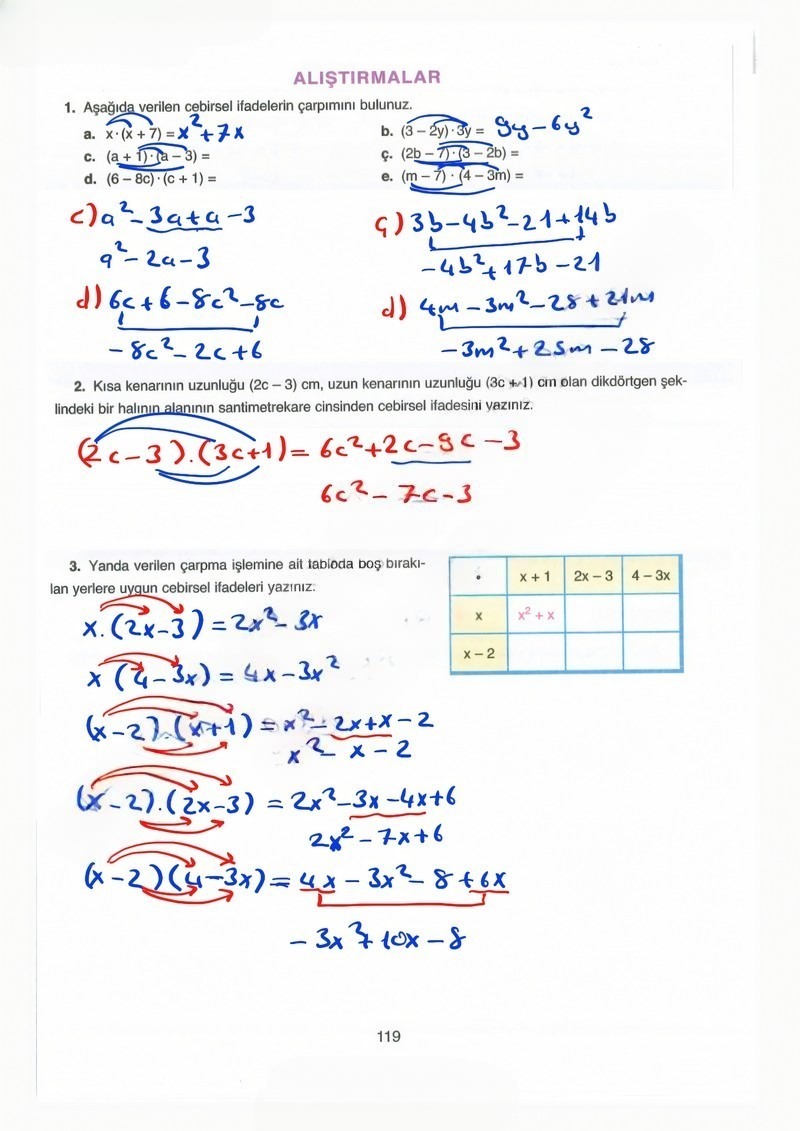 ALIŞTIRMALAR
1. Aşağıda verilen cebirsel ifadelerin çarpımını bulunuz.
a. x·(x + 7) = x² + 7x
b. (3 – 2y)·3y = 9y – 6y²
c. (a + 1)·(a – 3) =
ç. (2b – 7)·(3 – 2b) =
d. (6 – 8c)·(c + 1) =
e. (m – 7)·(4 – 3m) =
c) a² – 3a + a – 3
a² – 2a – 3
ç) 3b – 4b² – 21 + 14b
– 4b² + 17b – 21
d) 6c + 6 – 8c² – 8c
– 8c² – 2c + 6
d) 4m – 3m² – 28 + 21m
– 3m² + 25m – 28
2. Kısa kenarının uzunluğu (2c – 3) cm, uzun kenarının uzunluğu (3c + 1) cm olan dikdörtgen şek-
lindeki bir halının alanının santimetrekare cinsinden cebirsel ifadesini yazınız.
(2c – 3).(3c + 1) = 6c² + 2c – 9c – 3
6c² – 7c – 3
3. Yanda verilen çarpma işlemine ait tabloda boş bırakı-
lan yerlere uygun cebirsel ifadeleri yazınız:
· x + 1 2x – 3 4 – 3x
x x² + x
x – 2
x.(2x – 3) = 2x² – 3x
x(4 – 3x) = 4x – 3x²
(x – 2).(x + 1) = x² – 2x + x – 2
x² – x – 2
(x – 2).(2x – 3) = 2x² – 3x – 4x + 6
2x² – 7x + 6
(x – 2)(4 – 3x) = 4x – 3x² – 8 + 6x
– 3x² + 10x – 8
119